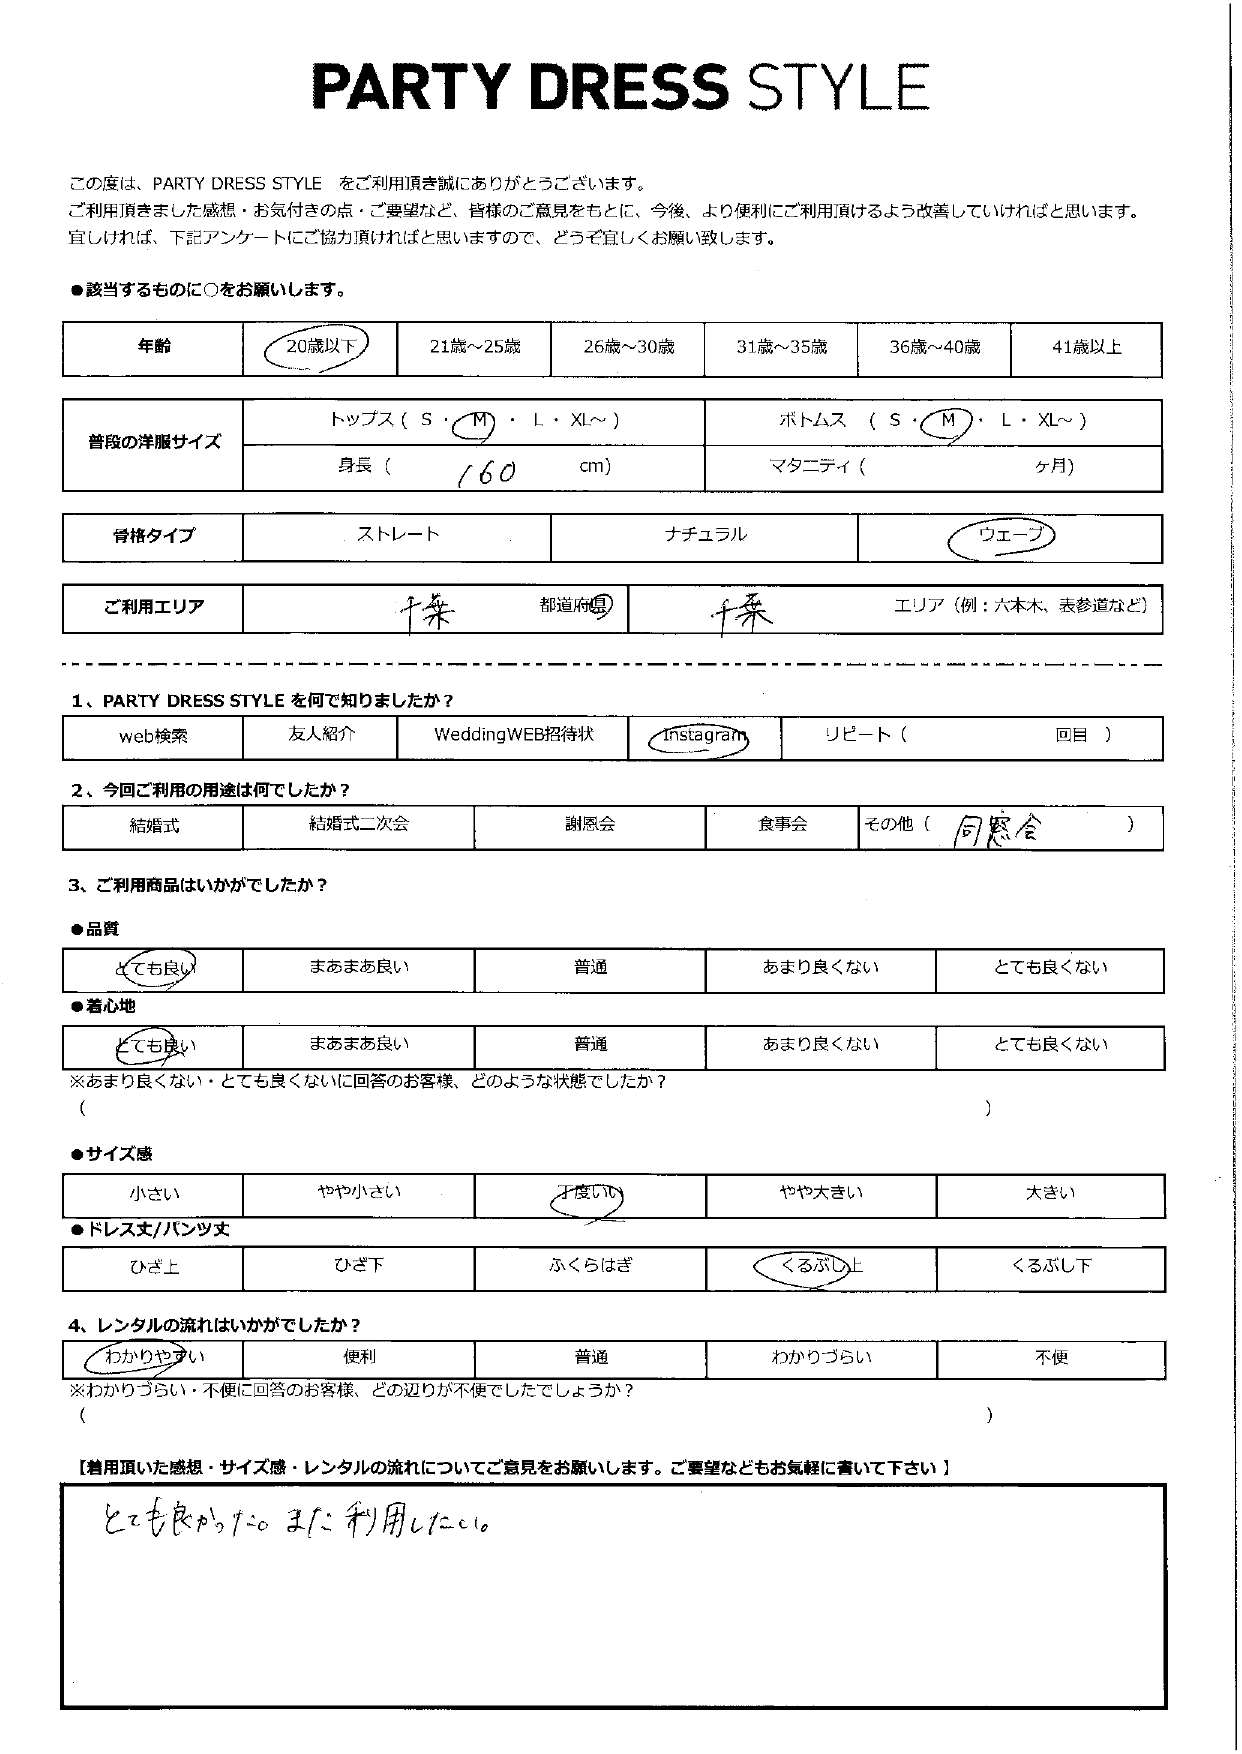 PARTY DRESS STYLE
この度は、PARTY DRESS STYLE をご利用頂き誠にありがとうございます。
ご利用頂きました感想・お気付きの点・ご要望など、皆様のご意見をもとに、今後、より便利にご利用頂けるよう改善していければと思います。
宜しければ、下記アンケートにご協力頂ければと思いますので、どうぞ宜しくお願い致します。
●該当するものに○をお願いします。
年齢 20歳以下 21歳～25歳 26歳～30歳 31歳～35歳 36歳～40歳 41歳以上
普段の洋服サイズ
トップス ( S ・ M ・ L ・ XL～ ) ボトムス ( S ・ M ・ L ・ XL～ )
身長 ( 160 cm) マタニティ ( ヶ月)
骨格タイプ ストレート ナチュラル ウェーブ
ご利用エリア 千葉 都道府県 千葉 エリア（例：六本木、表参道など）
1、PARTY DRESS STYLE を何で知りましたか？
web検索 友人紹介 WeddingWEB招待状 Instagram リピート ( 回目 )
2、今回ご利用の用途は何でしたか？
結婚式 結婚式二次会 謝恩会 食事会 その他 ( 同窓会 )
3、ご利用商品はいかがでしたか？
●品質
とても良い まあまあ良い 普通 あまり良くない とても良くない
●着心地
とても良い まあまあ良い 普通 あまり良くない とても良くない
※あまり良くない・とても良くないに回答のお客様、どのような状態でしたか？
( )
●サイズ感
小さい やや小さい 丁度いい やや大きい 大きい
●ドレス丈/パンツ丈
ひざ上 ひざ下 ふくらはぎ くるぶし上 くるぶし下
4、レンタルの流れはいかがでしたか？
わかりやすい 便利 普通 わかりづらい 不便
※わかりづらい・不便に回答のお客様、どの辺りが不便でしたでしょうか？
( )
【着用頂いた感想・サイズ感・レンタルの流れについてご意見をお願いします。ご要望などもお気軽に書いて下さい 】
とても良かった。また利用したい。